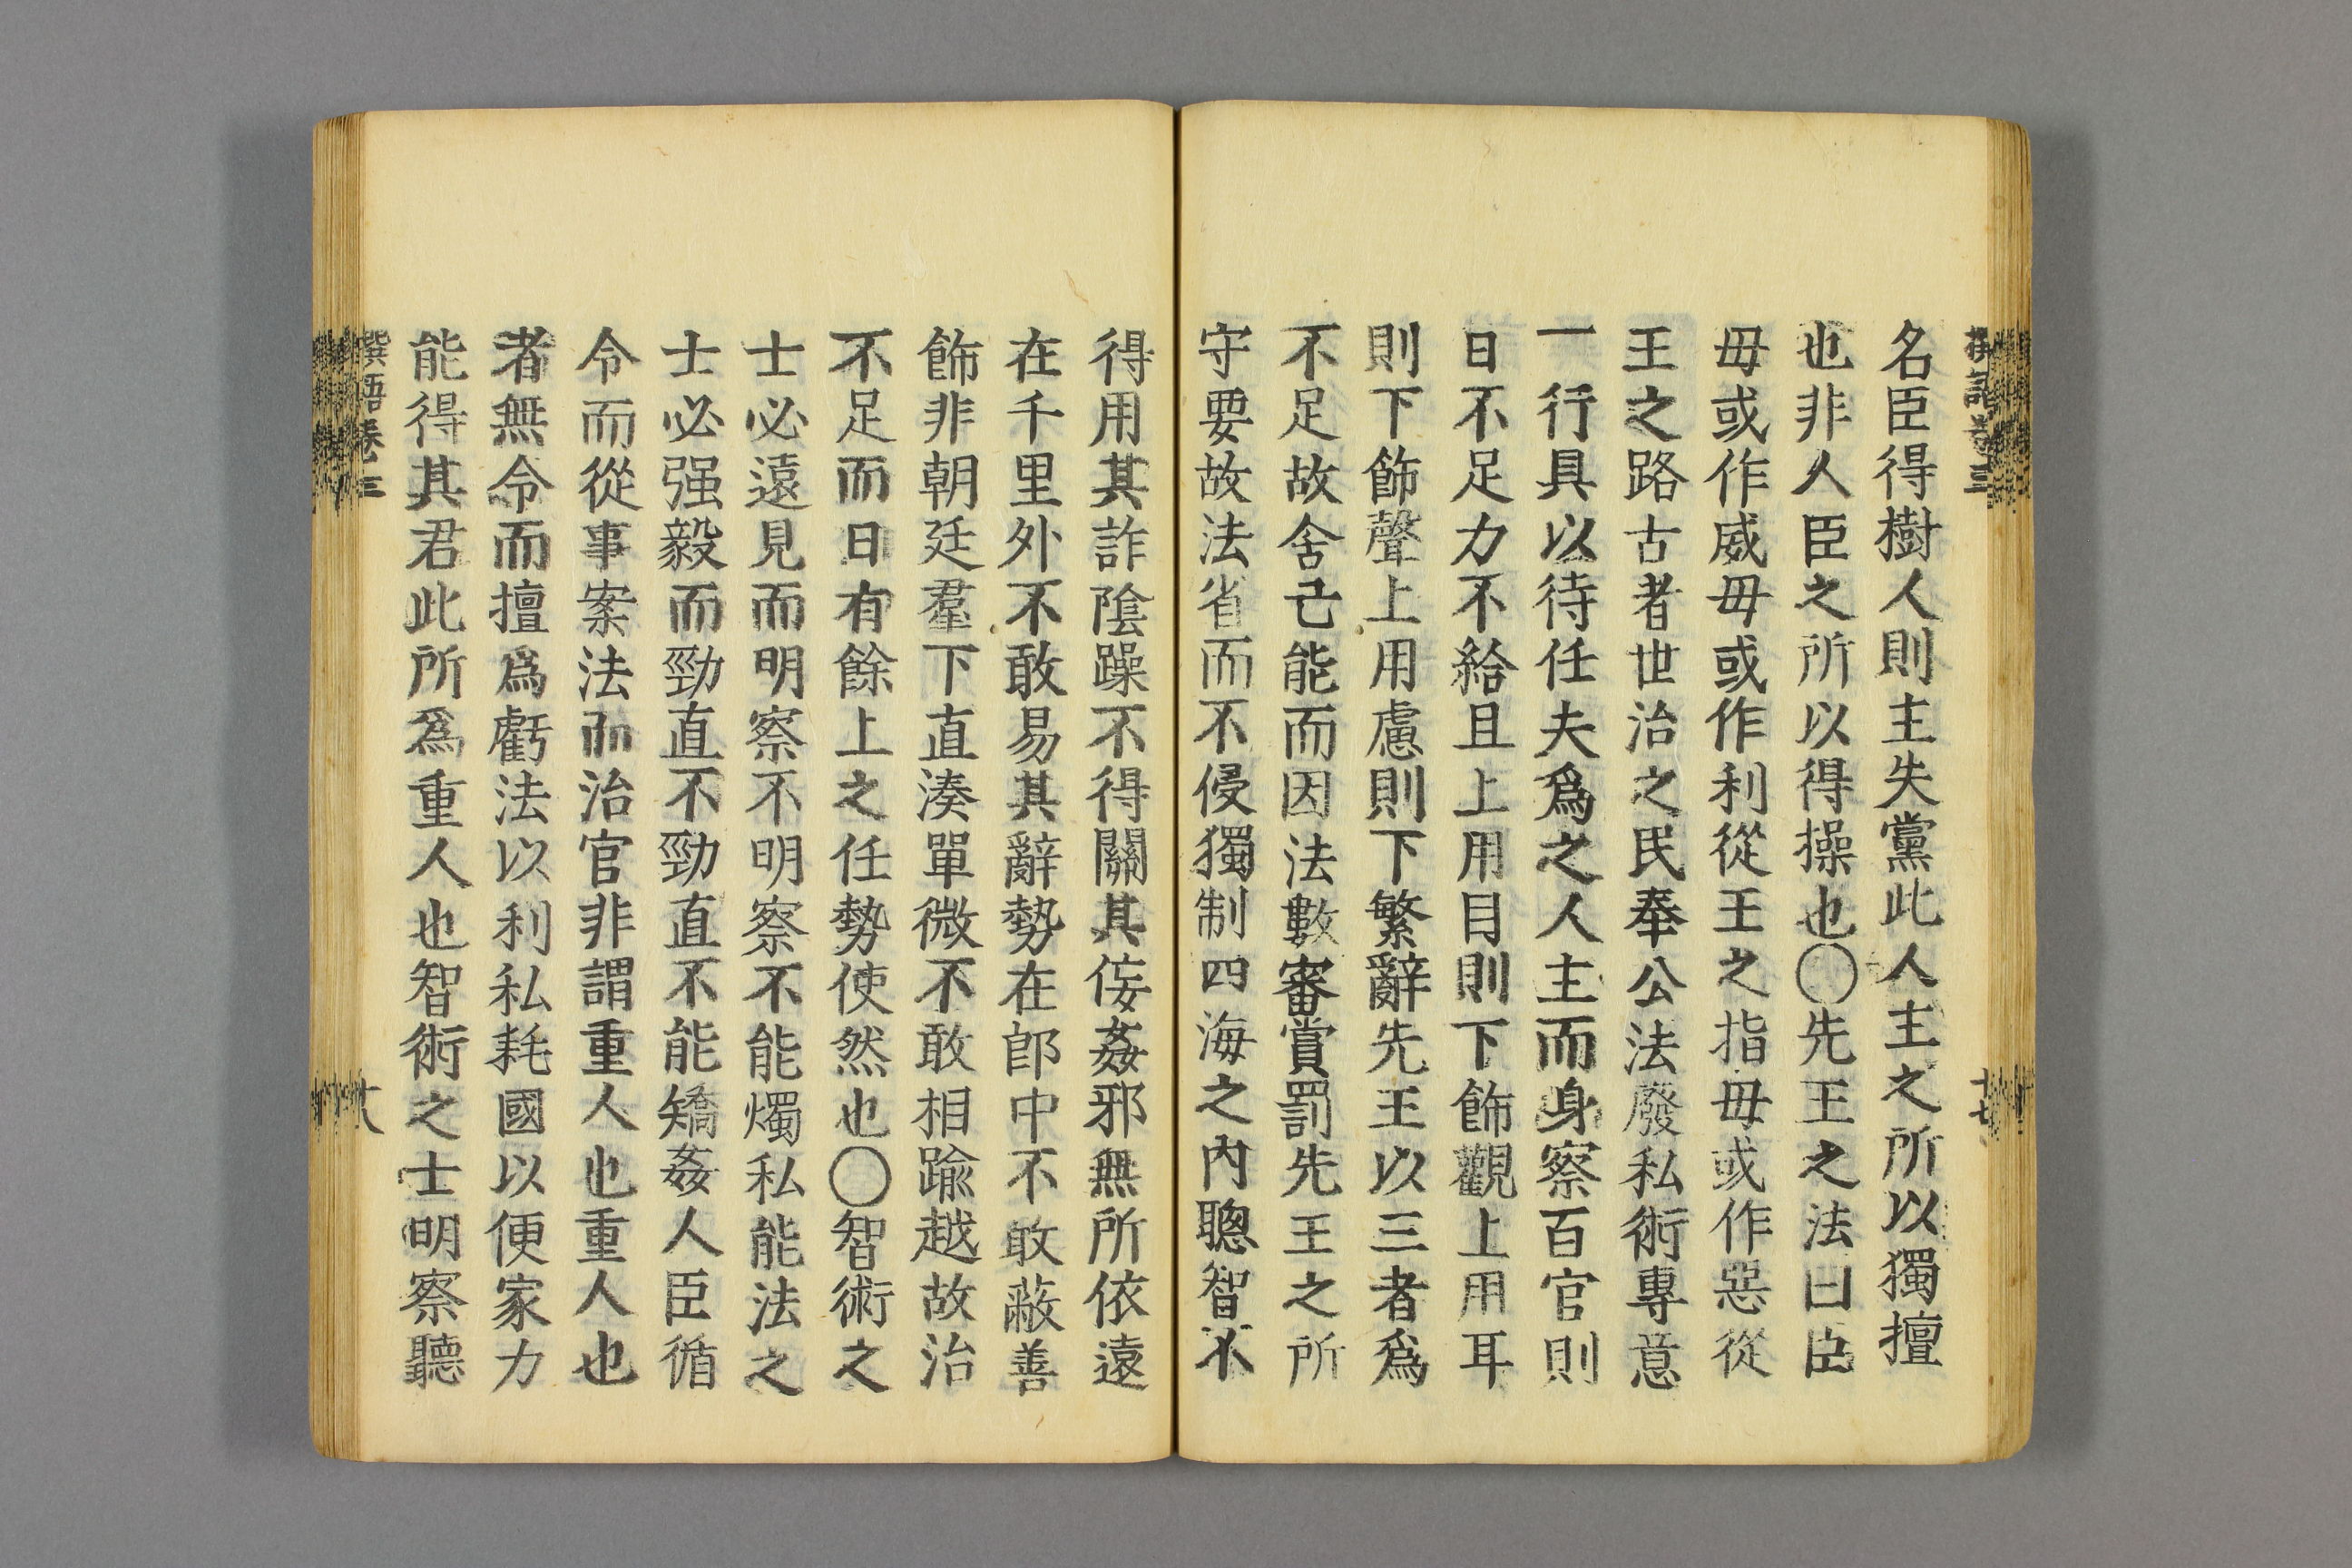 名臣得樹人則主失黨此人主之所以獨擅
也非人臣之所以得操也〇先王之法曰臣
毋或作威毋或作利從王之指毋或作惡從
王之路古者世治之民奉公法廢私術專意
一行具以待任夫爲之人主而身察百官則
日不足力不給且上用目則下飾觀上用耳
則下飾聲上用慮則下繁辭先王以三者爲
不足故舍己能而因法數審賞罰先王之所
守要故法省而不侵獨制四海之內聰智不
得用其詐陰躁不得關其侫姦邪無所依遠
在千里外不敢易其辭勢在郎中不敢蔽善
飾非朝廷羣下直湊單微不敢相踰越故治
不足而日有餘上之任勢使然也〇智術之
士必遠見而明察不明察不能燭私能法之
士必强毅而勁直不勁直不能矯姦人臣循
令而從事案法而治官非謂重人也重人也
者無令而擅爲虧法以利私耗國以便家力
能得其君此所爲重人也智術之士明察聽
撰語卷三
十八